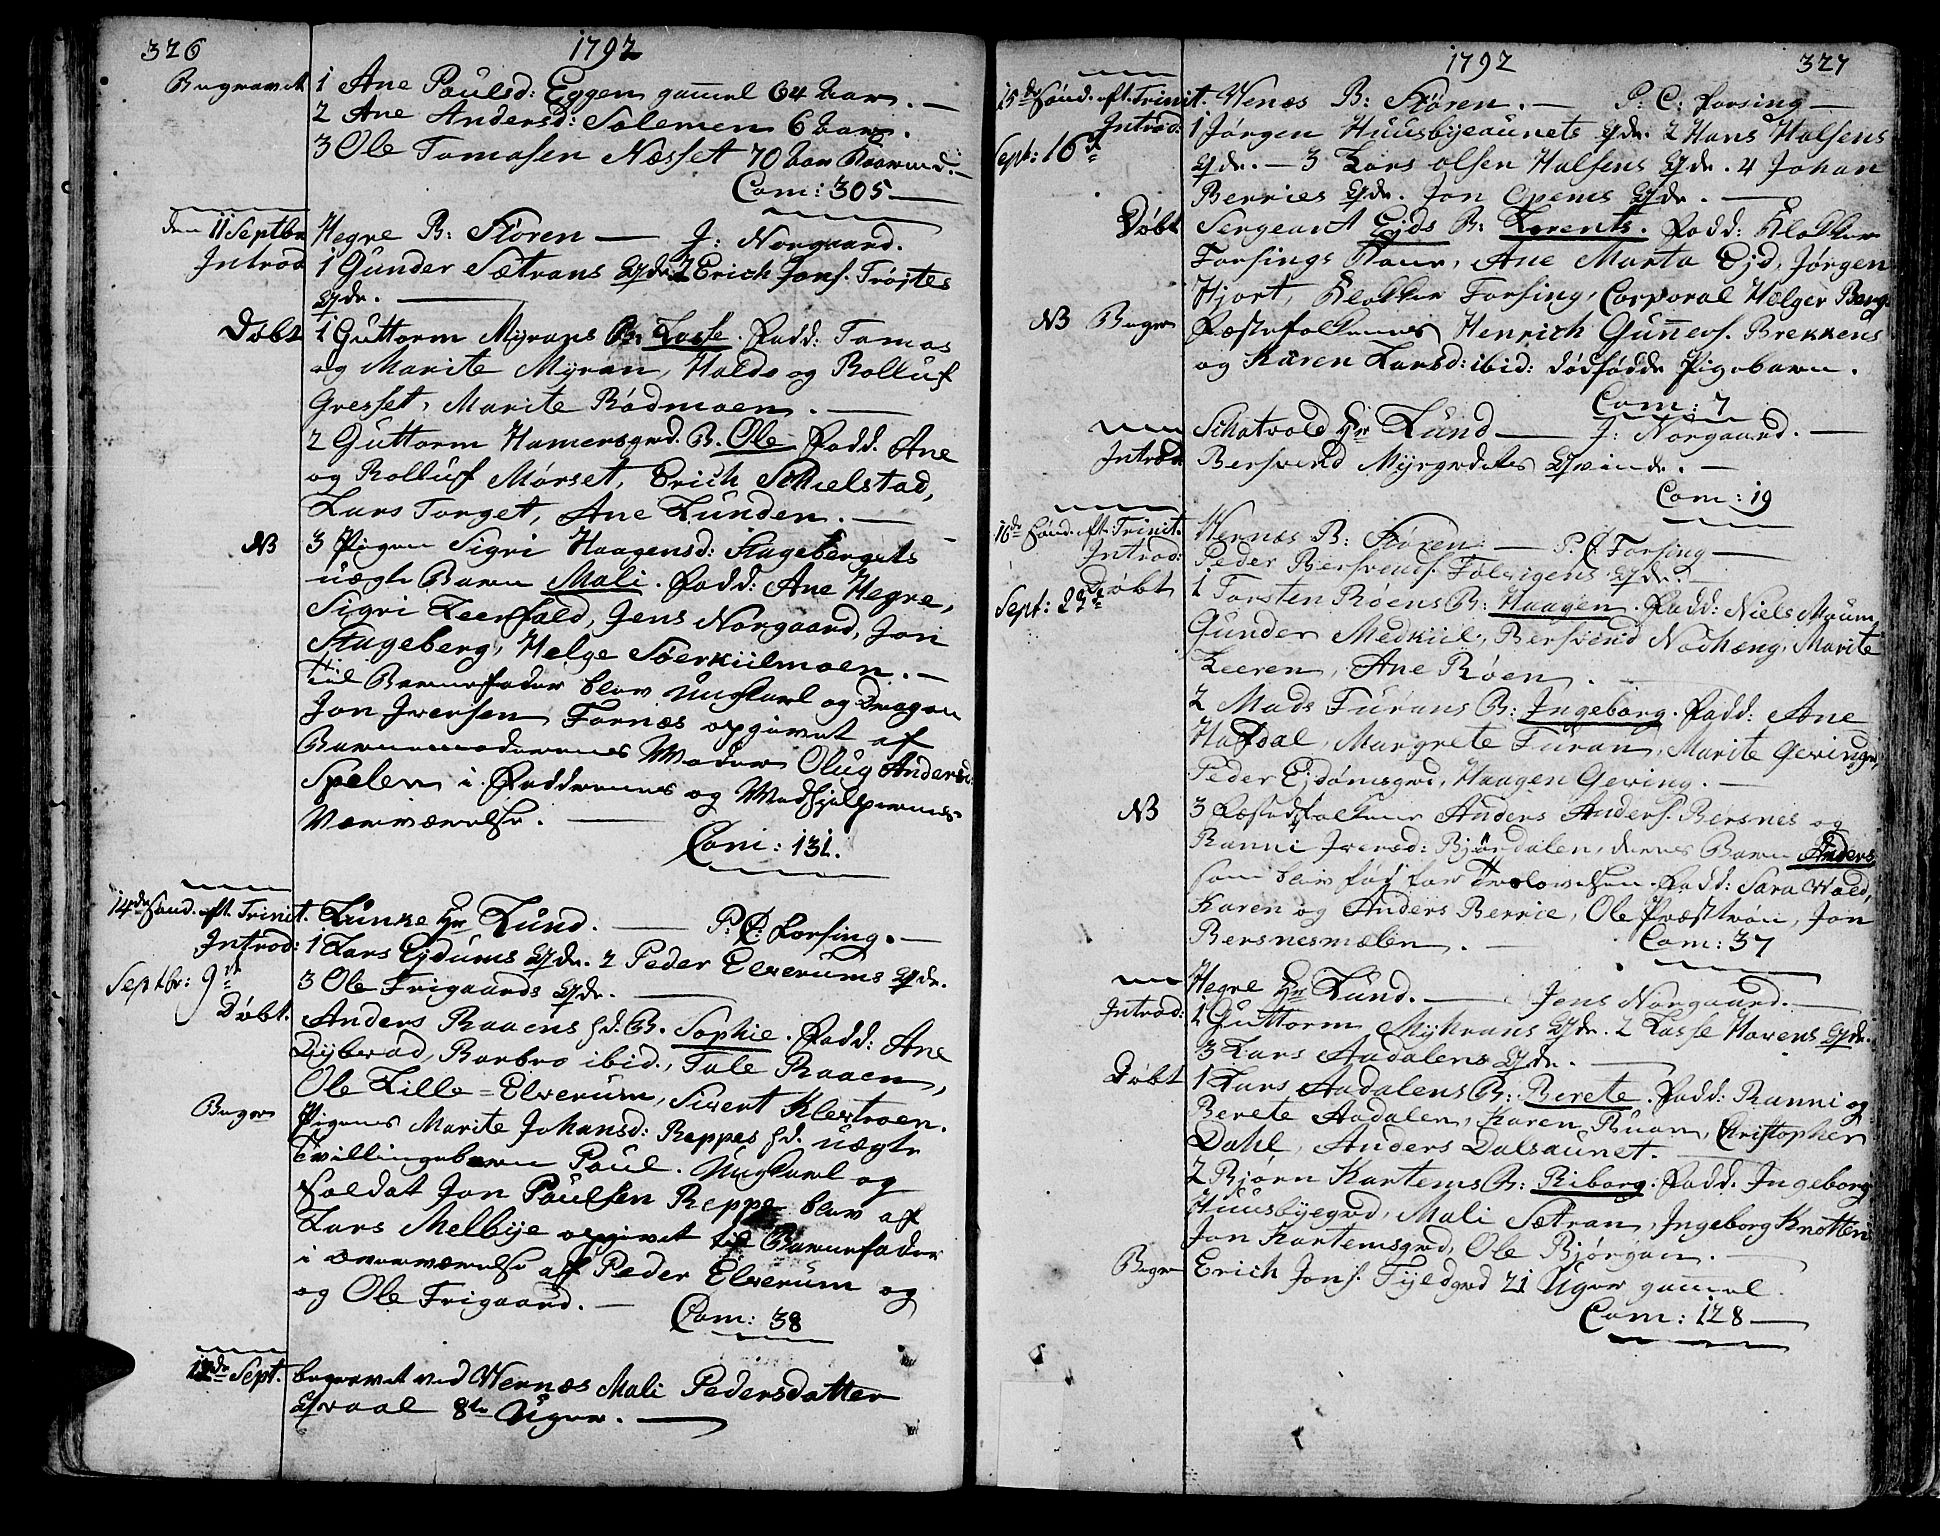 326
1792
Begravet 1 Ane Paulsd: Eggen gam̄el 64 Aar. —
2 Ane Andersd: Solemen 6 Aar.
3 Ole Tomasen Næsset 70 Aar
Com: 305 —
den 11 Septbr Hegre B: Støren — J: Norgaard.
Introd 1 Gunder Sætrans Qde. 2 Erich Jons. Trøjtes
Qde. —
Døbt 1 Guttorm Myrans B. Lasse. Fadd: Tomas
og Marite Myran, Haldo og Rolluf
Gresset, Marite Rødmoen. —
2 Guttorm Hamersgrd. B. Ole Fadd. Ane
og Rolluf Mørset, Erich Schielstad,
Lars Torget, Ane Lunden. —
NB 3 Pigen Sigri Haagensd: Stagebergets
uægte Barn Mali. Fadd: Ane Hegre,
Sigri Leerfald, Jens Norgaard, Jon
Stageberg, Helge Søerkiilmoen. —
til Barnefader blev Ungkarl og Dragon
Jon Iversen Fornæs opgivet af
Barnemoderens Moder Olug Andersd:
Spelen i Faddernes og Medhjelpernes
Nærværelse. —
Com: 131.
14de Sønd. eft. Trinit. Lånke Hr Lund. — P: C: Forsing. —
Introd: 1 Lars Ejdums Qde. 2 Peder Elverums Qde.
Septbr: 9de 3 Ole Frigaards Qde. —
Døbt. Anders Raaens hd. B. Sophie. Fadd: Ane
Dybvad, Barbro ibid., Tale Raaen,
Ole Lille=Elverum, Sivert Klevtroen.
Begrav Pigens Marite Johansd: Reppes hd. uægte
Tvillingebarn Paul. Ungkarl og
Soldat Jon Paulsen Reppe blev af
Lars Melbye opgivet til Barnefader
i overværelse af Peder Elverum og
og Ole Frigaard. —
Com: 38
12de Sept. begravet ved Wernæs Mali Pedersdatter
Qvaal 8te Uger. —
1792
327
15de Sønd. eft. Trinit. Wenæs B: Støren. — P: C: Forsing —
Introd: 1 Jørgen Huusbyeaunets Qde. 2 Hans Halsens
Sept: 16de Qde. — 3 Lars Olsen Halsens Qde. 4 Johan
Berries Qde. Jon Opems Qde. —
Døbt Sergeant Ejds B: Lorents. Fadd: Klokker
Forsings Kone, Ane Marta Ejd, Jørgen
Hjort, Klokker Forsing, Corporal Hælger Berg
NB Begrav Fæstefolkenes Henrich Gun̄ers. Brekkens
og Karen Larsd: ibid: dødfødde Pigebarn.
Com: 7
Schatvold Hr Lund — J: Norgaard. —
Introd Bersvend Myrgrdetes Qvinde. —
Com: 19
16de Sønd. eft. Trinit. Wernæs B: Støren. — P. C. Forsing —
Introd: Peder Bersvends. Folvigens Qde. —
Sept: 23de Døbt 1 Torsten Roens B: Haagen. Fadd: Niels Moum
Gunder Medkiil, Bersvend Nodhæng, Marite
Leeren, Ane Røen.
2 Mads Furans B: Ingeborg. Fadd: Ane
Hafdal, Margrete Furan, Marite Geving,
Peder Ejdomsgrd, Haagen Geving. —
NB 3 Fæstefolkene Anders Anders. Bersnes og
Ranni Iversd: Bjørdalen, deres Barn Anders
som blev født før Trolovelsen. Fadd: Sara Wold,
Karen og Anders Berrie, Ole Præstrøn, Jon
Bersnesmælen. —
Com: 37
Hegre Hr Lund. — Jens Norgaard. —
Introd: 1 Guttorm Myhrans Qde. 2 Lasse Hovens Qde.
3 Lars Aadalens Qde. —
Døbt 1 Lars Aadalens B: Berete. Fadd: Ranni og
Berete Aadalen, Karen Ruan, Christopher
Dahl, Anders Dalsaunet. —
2 Bjørn Kartems B: Riborg: Fadd. Ingeborg
Huusbyegrd, Mali Sætran, Ingeborg Knotten
Jon Kartemsgrd, Ole Bjørgan. —
Begr Erich Jons. Fyldgrd 21 Uger gam̄el.
Com: 128 —